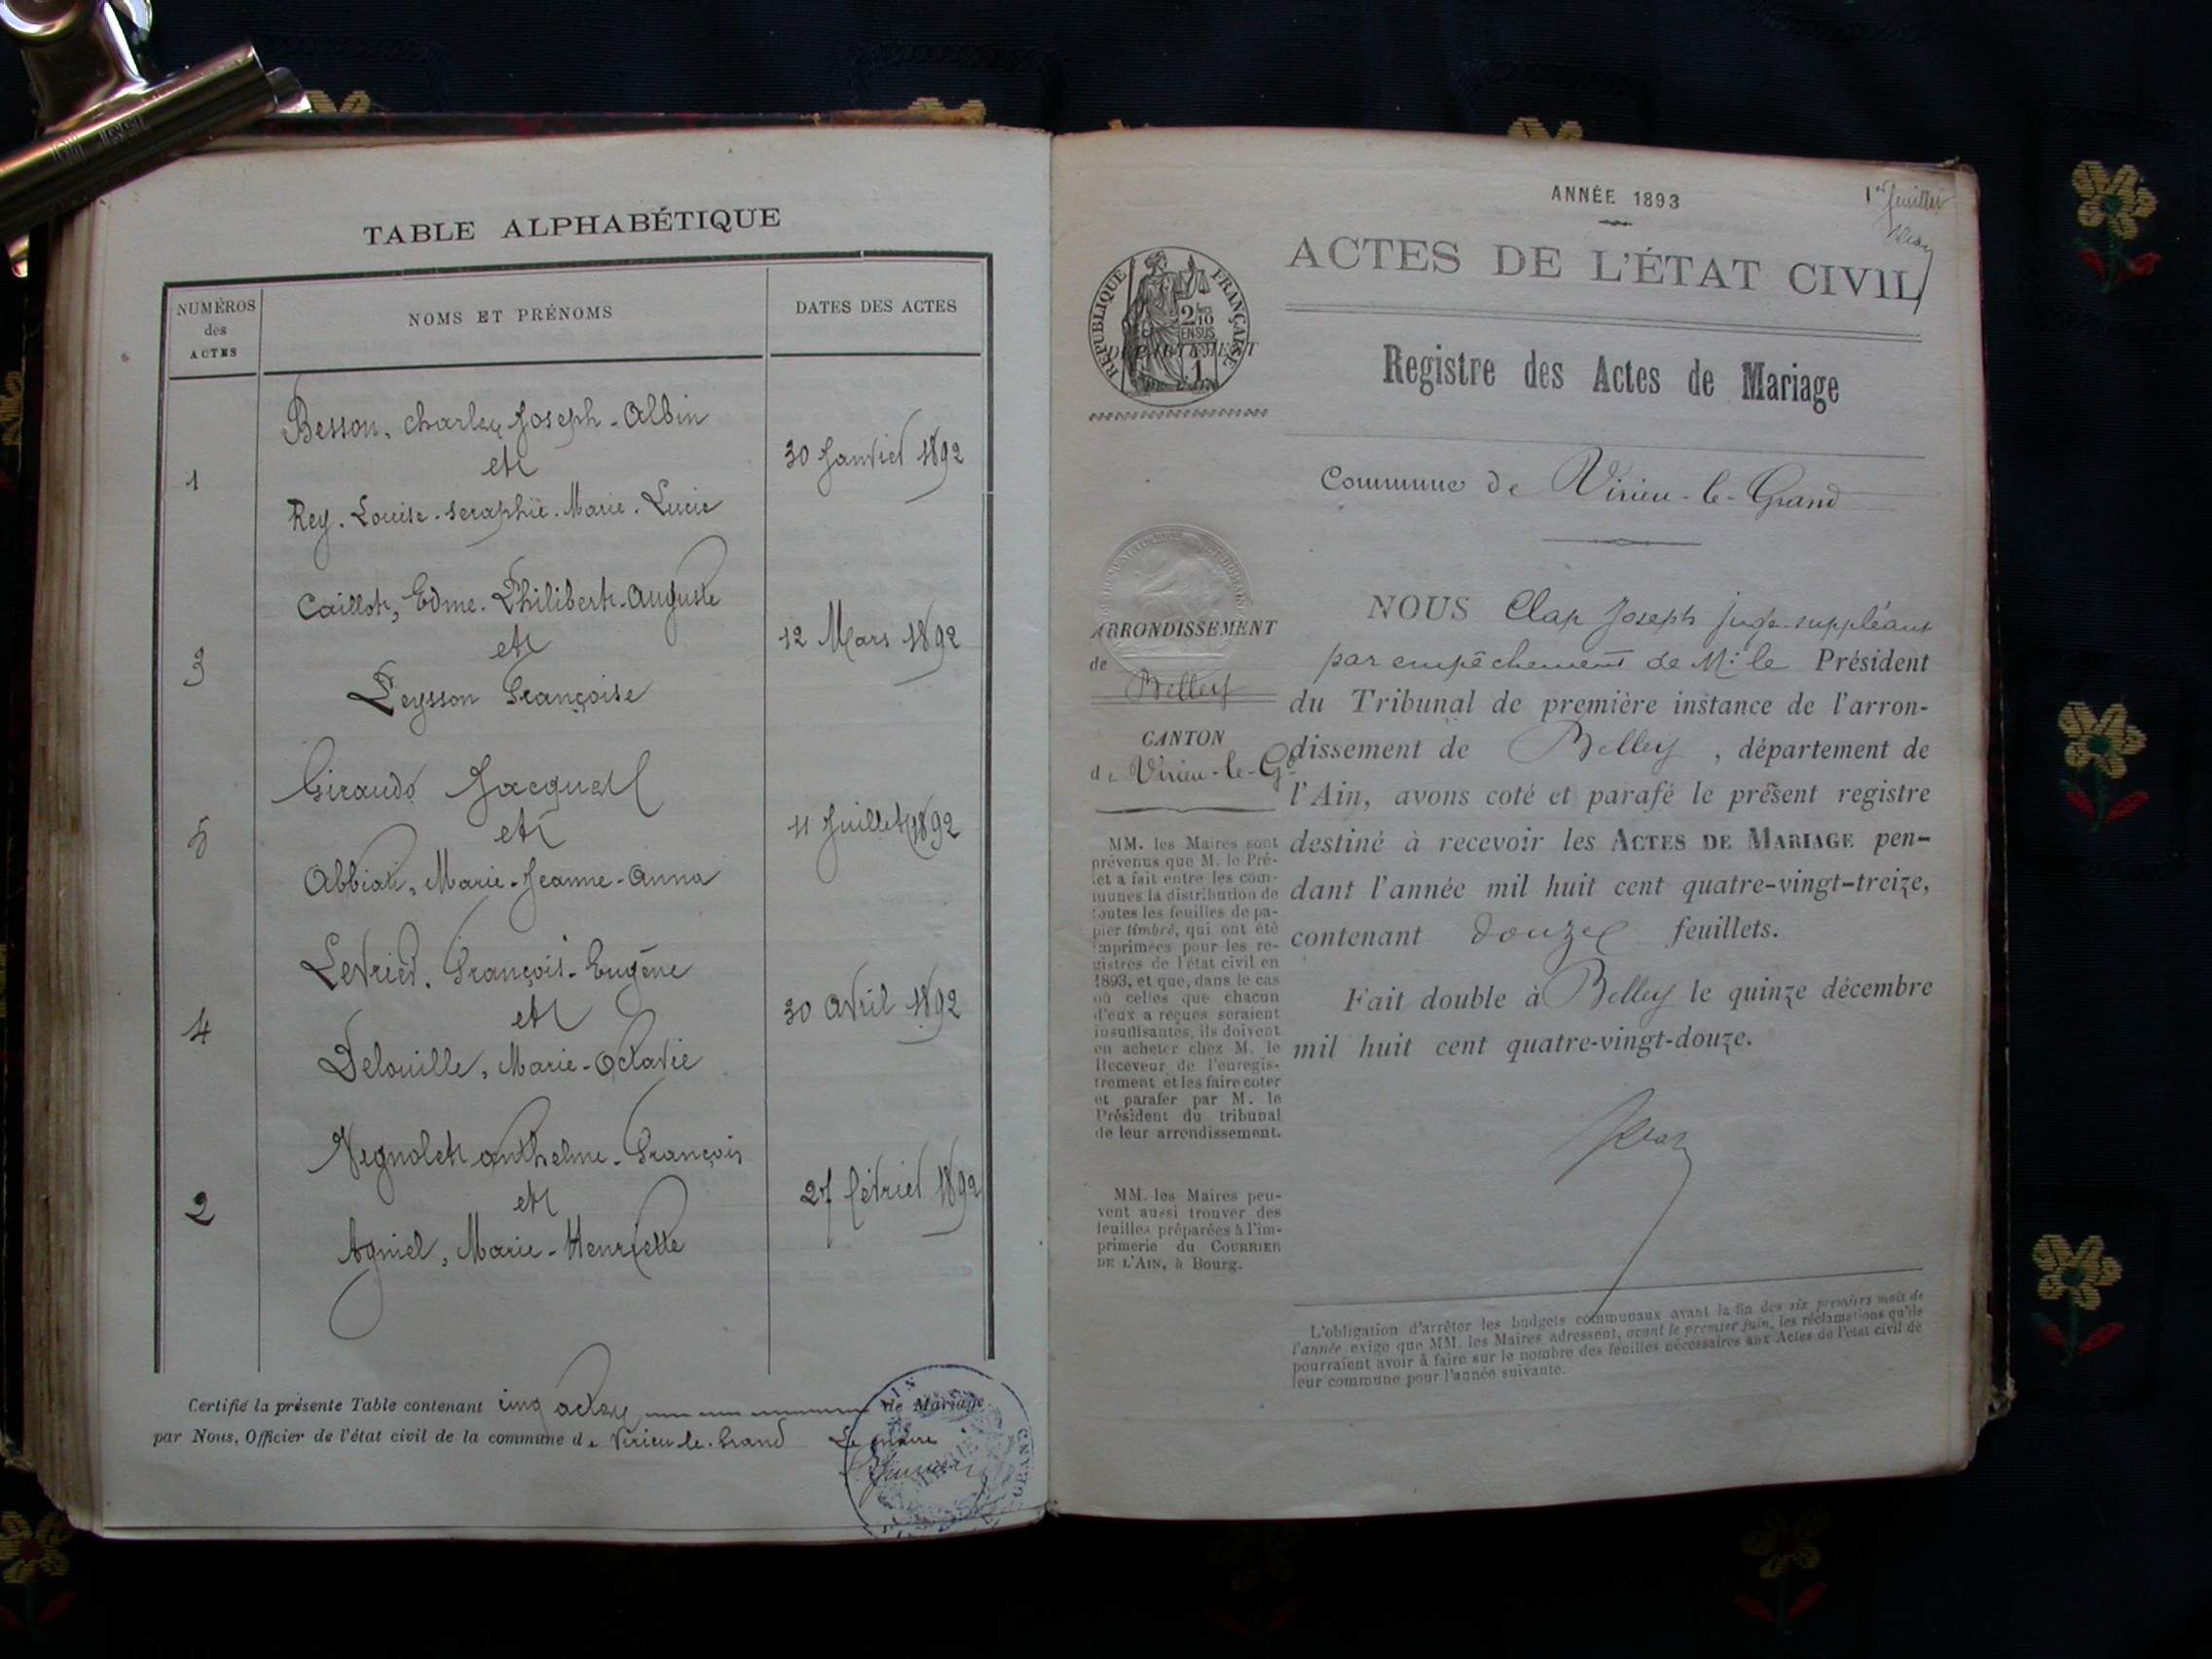 TABLE ALPHABÉTIQUE
NUMÉROS
des
ACTES
NOMS ET PRÉNOMS
DATES DES ACTES
Besson, Charles Joseph-Albin
1
et
30 Janvier 1892
Rey. Louise-Seraphie-Marie-Lucie
Caillot, Edme-Philibert-Auguste
3
et
12 Mars 1892
Peysson Françoise
Giraudo Jacques
5
et
11 Juillet 1892
Abbiati, Marie-Jeanne-Anna
Levrier. François-Eugène
4
et
30 Avril 1892
Delouille, Marie-Octavie
Vegnolet Anthelme-François
2
et
27 février 1892
Agniel, Marie-Henriette
Certifié la présente Table contenant cinq actes de Mariage
par Nous, Officier de l'état civil de la commune de Virieu-le-Grand Le maire
ANNÉE 1893
1er feuillet
ACTES DE L'ÉTAT CIVIL
RÉPUBLIQUE FRANÇAISE
2/10 EN SUS
DÉPARTEMENT
DE L'AIN
Registre des Actes de Mariage
Commune de Virieu-le-Grand
ARRONDISSEMENT
de
Belley
CANTON
de Virieu-le-Gd
MM. les Maires sont
prévenus que M. le Pré-
fet a fait entre les com-
munes la distribution de
toutes les feuilles de pa-
pier timbré, qui ont été
imprimées pour les re-
gistres de l'état civil en
1893, et que, dans le cas
où celles que chacun
d'eux a reçues seraient
insuffisantes, ils doivent
en acheter chez M. le
Receveur de l'enregis-
trement et les faire coter
et parafer par M. le
Président du tribunal
de leur arrondissement.
MM. les Maires peu-
vent aussi trouver des
feuilles préparées à l'im-
primerie du COURRIER
DE L'AIN, à Bourg.
NOUS Clap Joseph juge-suppléant
par empêchement de Mr le Président
du Tribunal de première instance de l'arron-
dissement de Belley, département de
l'Ain, avons coté et parafé le présent registre
destiné à recevoir les ACTES DE MARIAGE pen-
dant l'année mil huit cent quatre-vingt-treize,
contenant douze feuillets.
Fait double à Belley le quinze décembre
mil huit cent quatre-vingt-douze.
L'obligation d'arrêter les budgets communaux avant la fin des six premiers mois de
l'année exige que MM. les Maires adressent, avant le premier juin, les réclamations qu'ils
pourraient avoir à faire sur le nombre des feuilles nécessaires aux Actes de l'état civil de
leur commune pour l'année suivante.